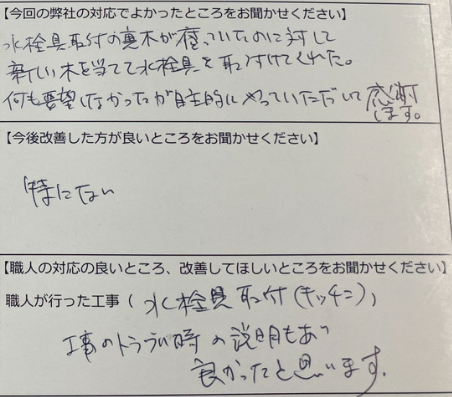 【今回の弊社の対応でよかったところをお聞かせください】
水栓具取付の裏木が腐っていたのに対して
新しい木を当てて水栓具を取付けてくれた。
何も要望しなかったが自主的にやっていただいて感謝
します。
【今後改善した方が良いところをお聞かせください】
特にない
【職人の対応の良いところ、改善してほしいところをお聞かせください】
職人が行った工事（水栓具取付(キッチン)）
工事のトラブル時の説明もあり
良かったと思います。